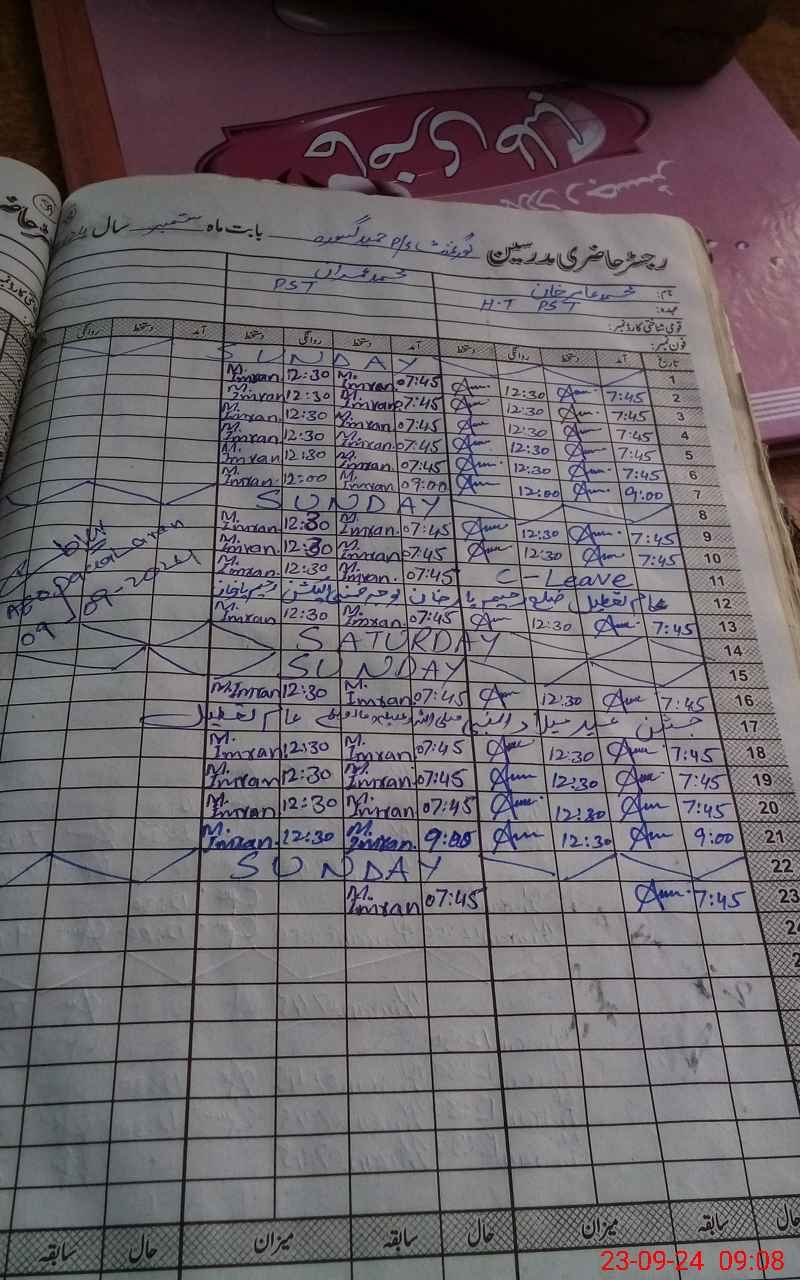 حاضری طلبہ
رجسٹر حاضری مدرسین گورنمنٹ P/S بابت ماہ ستمبر سال
نام: محمد عامر خان محمد عمران
عہدہ: H.T PST PST
قومی شناختی کارڈ نمبر:
فون نمبر:
تاریخ آمد دستخط روانگی دستخط آمد دستخط روانگی دستخط آمد دستخط روانگی
1 SUNDAY
2 7:45 12:30 07:45 M. Imran 12:30 M. Imran
3 7:45 12:30 07:45 M. Imran 12:30 M. Imran
4 7:45 12:30 07:45 M. Imran 12:30 M. Imran
5 7:45 12:30 07:45 M. Imran 12:30 M. Imran
6 7:45 12:30 07:45 M. Imran 12:30 M. Imran
7 9:00 12:00 09:00 M. Imran 12:00 M. Imran
8 SUNDAY
9 7:45 12:30 07:45 M. Imran 12:30 M. Imran
10 7:45 12:30 07:45 M. Imran 12:30 M. Imran
11 C-Leave 07:45 M. Imran 12:30 M. Imran
12 عام تعطیل ضلع رحیم یار خان بوجہ ضمنی الیکشن رحیم یار خان
13 7:45 12:30 07:45 M. Imran 12:30 M. Imran
14 SATURDAY
15 SUNDAY
16 7:45 12:30 07:45 M. Imran 12:30 M. Imran
17 جشن عید میلاد النبی عام تعطیل
18 7:45 12:30 07:45 M. Imran 12:30 M. Imran
19 7:45 12:30 07:45 M. Imran 12:30 M. Imran
20 7:45 12:30 07:45 M. Imran 12:30 M. Imran
21 9:00 12:30 9:00 M. Imran 12:30 M. Imran
22 SUNDAY
23 7:45 07:45 M. Imran
09-09-2024
حال سابقہ میزان حال سابقہ میزان حال سابقہ
23-09-24 09:08